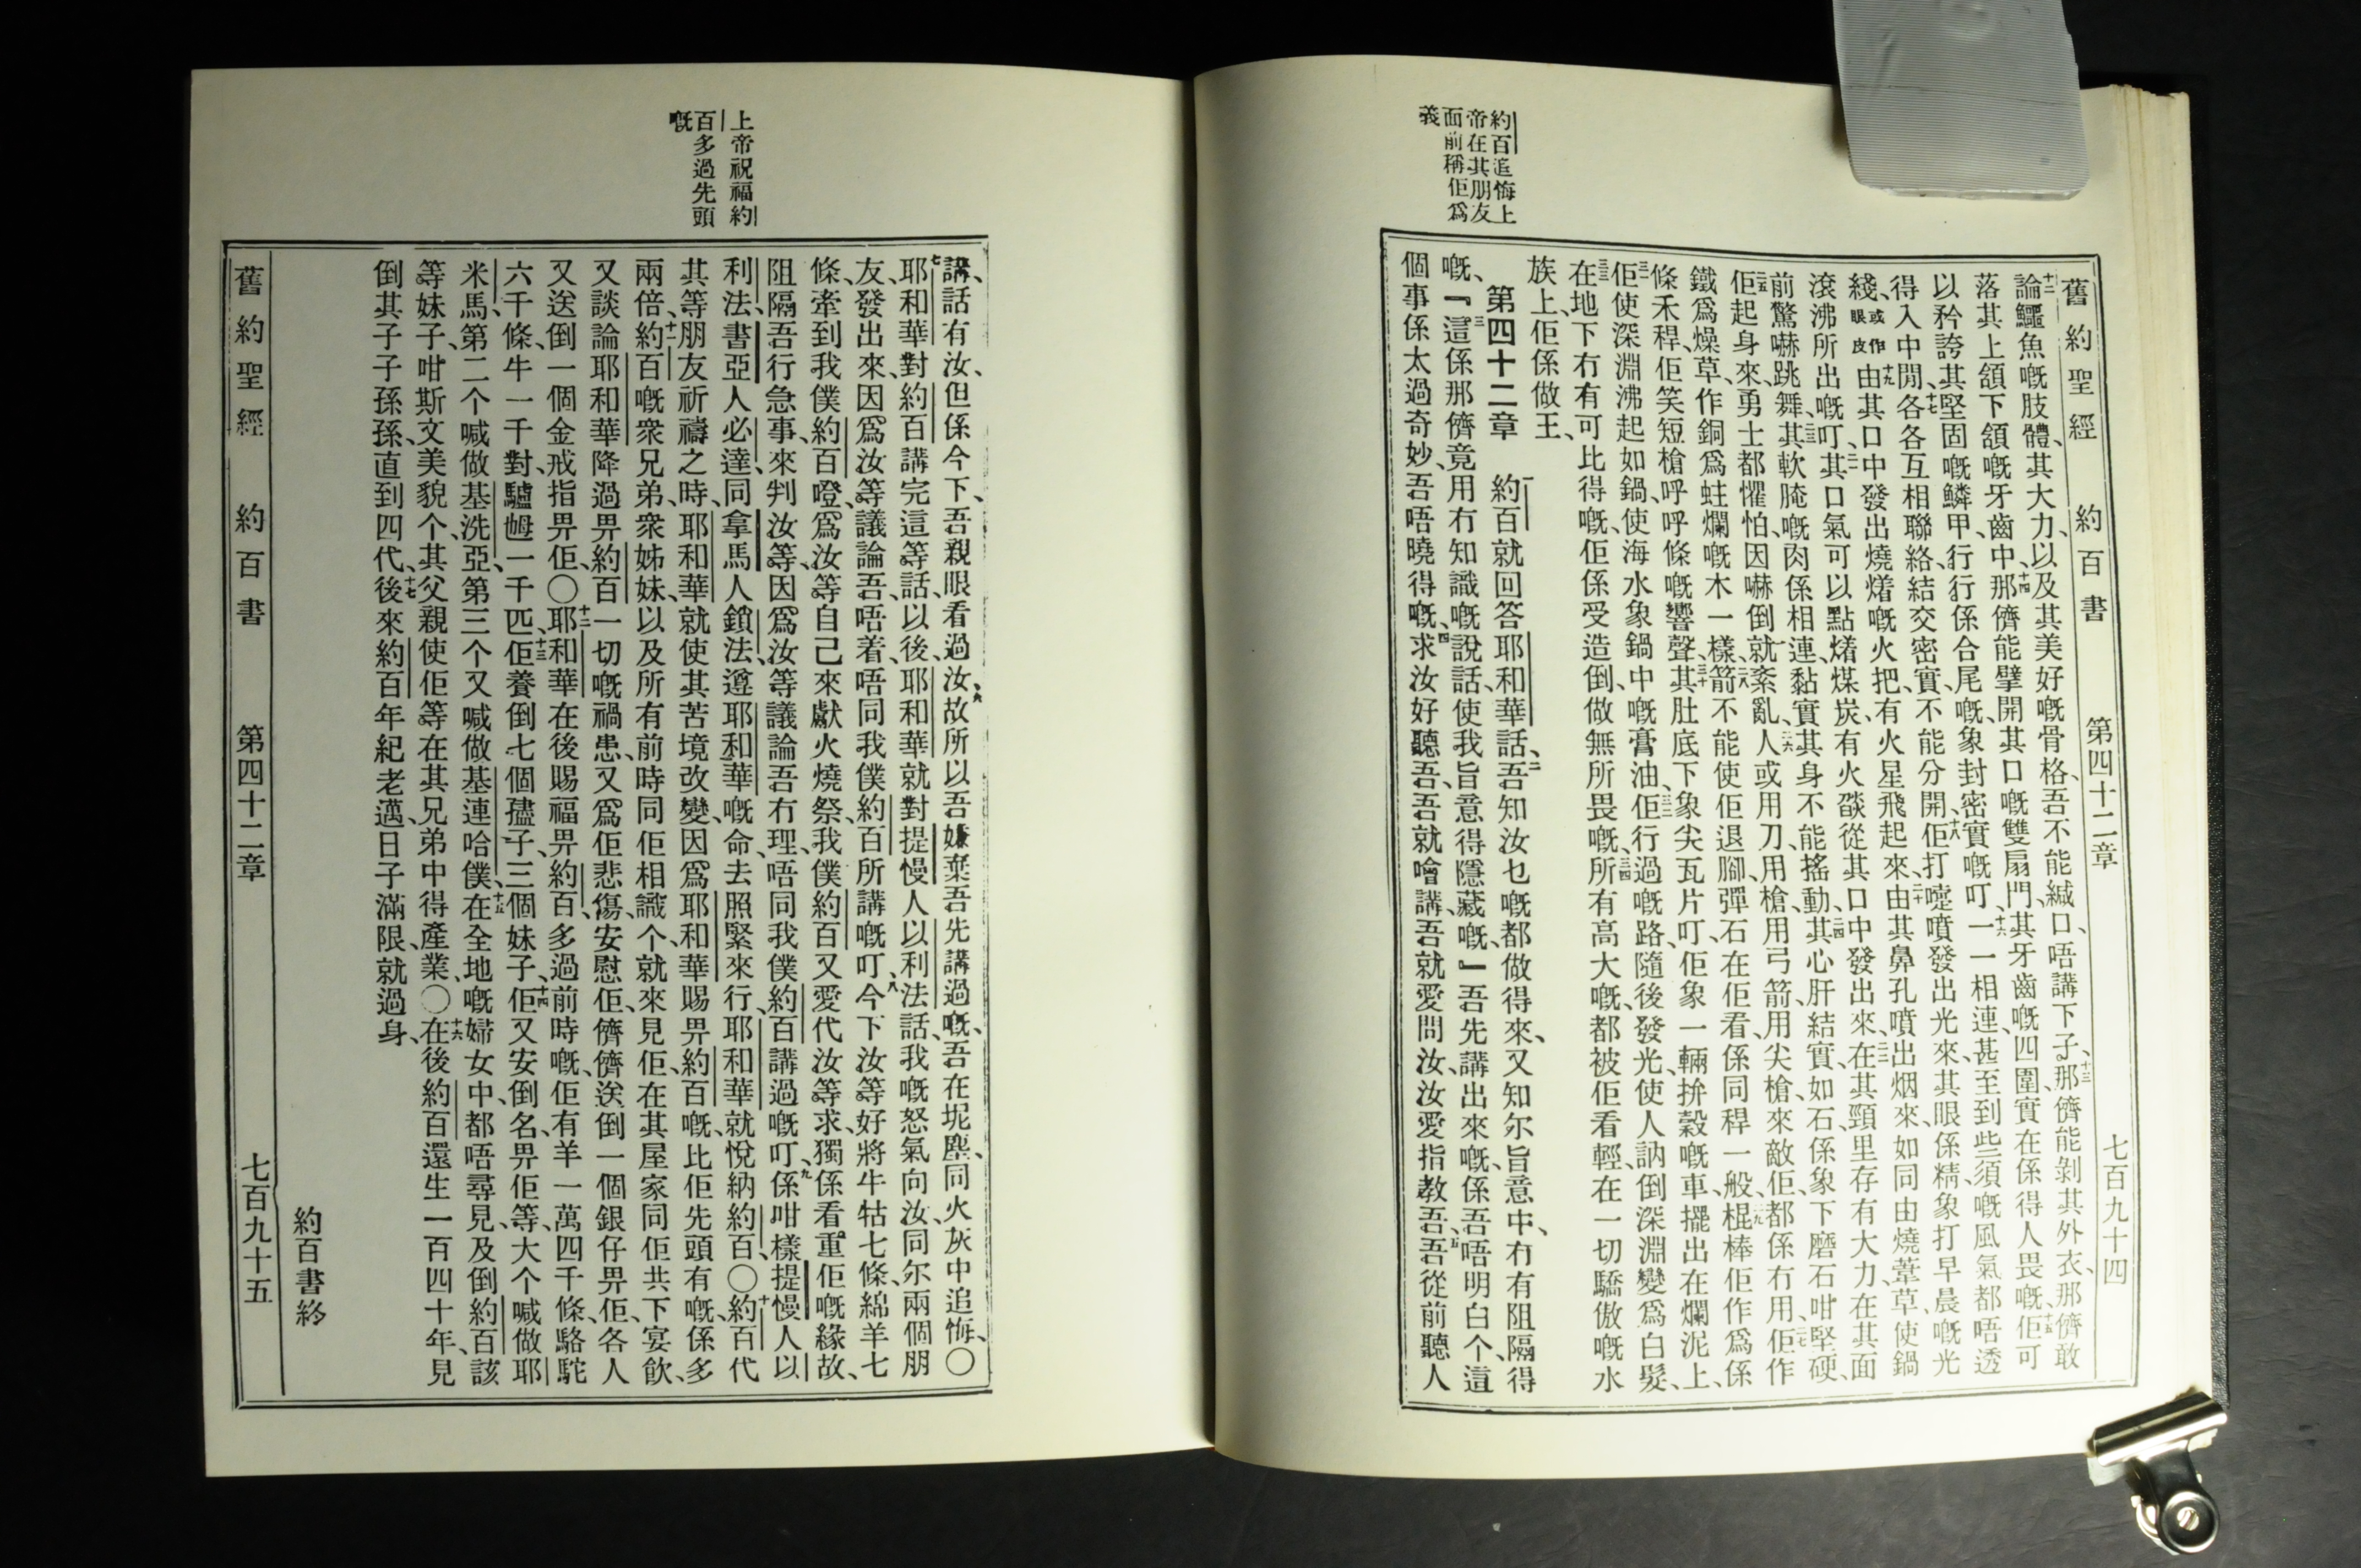 舊約聖經　約百書　第四十二章　七百九十四
約百追悔上
帝在其朋友
面前稱佢爲
義
十二論鱷魚嘅肢體、其大力、以及其美好嘅骨格、吾不能緘口、唔講下子、十三那儕能剝其外衣、那儕敢
落其上頷下頷嘅牙齒中、十四那儕能擘開其口嘅雙扇門、其牙齒嘅四圍、實在係得人畏嘅、十五佢可
以矜誇其堅固嘅鱗甲、行行係合尾嘅、象封密實嘅叮、十六一一相連、甚至到些須嘅風氣都唔透
得入中閒、十七各各互相聯絡、結交密實、不能分開、十八佢打嚏噴發出光來、其眼係精象打早晨嘅光
綫、或作眼皮十九由其口中發出燒㷮嘅火把、有火星飛起來、二十由其鼻孔噴出烟來、如同由燒葦草、使鍋
滾沸所出嘅叮、二一其口氣可以點㷮煤炭、有火燄從其口中發出來、二二在其頸里存有大力、在其面
前驚嚇跳舞、二三其軟腌嘅肉係相連、黏實其身、不能搖動、二四其心肝結實、如石、係象下磨石咁堅硬、
二五佢起身來、勇士都懼怕、因嚇倒就紊亂、二六人或用刀、用槍、用弓箭、用尖槍、來敵佢、都係冇用、二七佢作
鐵爲燥草、作銅爲蛀爛嘅木一樣、二八箭不能使佢退腳、彈石在佢看、係同稈一般、二九棍棒佢作爲係
條禾稈、佢笑短槍呼呼條嘅響聲、三十其肚底下、象尖瓦片叮、佢象一輛拚穀嘅車、擺出在爛泥上、
三一佢使深淵沸起如鍋、使海水象鍋中嘅膏油、三二佢行過嘅路、隨後發光、使人訥倒深淵變爲白髮、
三三在地下冇有可比得嘅、佢係受造倒、做無所畏嘅、三四所有高大嘅、都被佢看輕、在一切驕傲嘅水
族上、佢係做王、
第四十二章　一約百就回答耶和華話、二吾知汝乜嘅都做得來、又知尔旨意中、冇有阻隔得
嘅、三『這係那儕竟用冇知識嘅說話、使我旨意得隱藏嘅、』吾先講出來嘅、係吾唔明白个、這
個事係太過奇妙、吾唔曉得嘅、四求汝好聽吾、吾就噲講、吾就愛問汝、汝愛指教吾、五吾從前聽人
講話有汝、但係今下、吾親眼看過汝、六故所以吾嫌棄吾先講過嘅、吾在坭塵同火灰中追悔、〇
七耶和華對約百講完這等話、以後、耶和華就對提慢人以利法話、我嘅怒氣向汝、同尔兩個朋
友發出來、因爲汝等議論吾、唔着、唔同我僕約百所講嘅叮、八今下汝等好將牛牯七條、綿羊七
條、牽到我僕約百噔、爲汝等自己來獻火燒祭、我僕約百又愛代汝等求、獨係看重佢嘅緣故、
阻隔吾行急事、來判汝等、因爲汝等議論吾冇理、唔同我僕約百講過嘅叮、九係咁樣提慢人以
利法、書亞人必達、同拿馬人鎖法、遵耶和華嘅命去照緊來行、耶和華就悅納約百、〇十約百代
其等朋友祈禱之時、耶和華就使其苦境改變、因爲耶和華賜畀約百嘅、比佢先頭有嘅、係多
兩倍、十一約百嘅衆兄弟、衆姊妹、以及所有前時同佢相識个、就來見佢、在其屋家同佢共下宴飲、
又談論耶和華降過畀約百一切嘅禍患、又爲佢悲傷、安慰佢、儕儕送倒一個銀仔畀佢、各人
又送倒一個金戒指畀佢、〇十二耶和華在後賜福畀約百、多過前時嘅、佢有羊一萬四千條、駱駝
六千條、牛一千對、驢乸一千匹、十三佢養倒七個㜽子、三個妹子、十四佢又安倒名、畀佢等、大个喊做耶
米馬、第二个喊做基洗亞、第三个又喊做基連哈僕、十五在全地嘅婦女中、都唔尋見、及倒約百該
等妹子、咁斯文美貌个、其父親使佢等在其兄弟中得產業、〇十六在後約百還生一百四十年、見
倒其子子孫孫、直到四代、十七後來約百年紀老邁、日子滿限、就過身、
約百書終
上帝祝福約
百多過先頭
嘅
舊約聖經　約百書　第四十二章　七百九十五